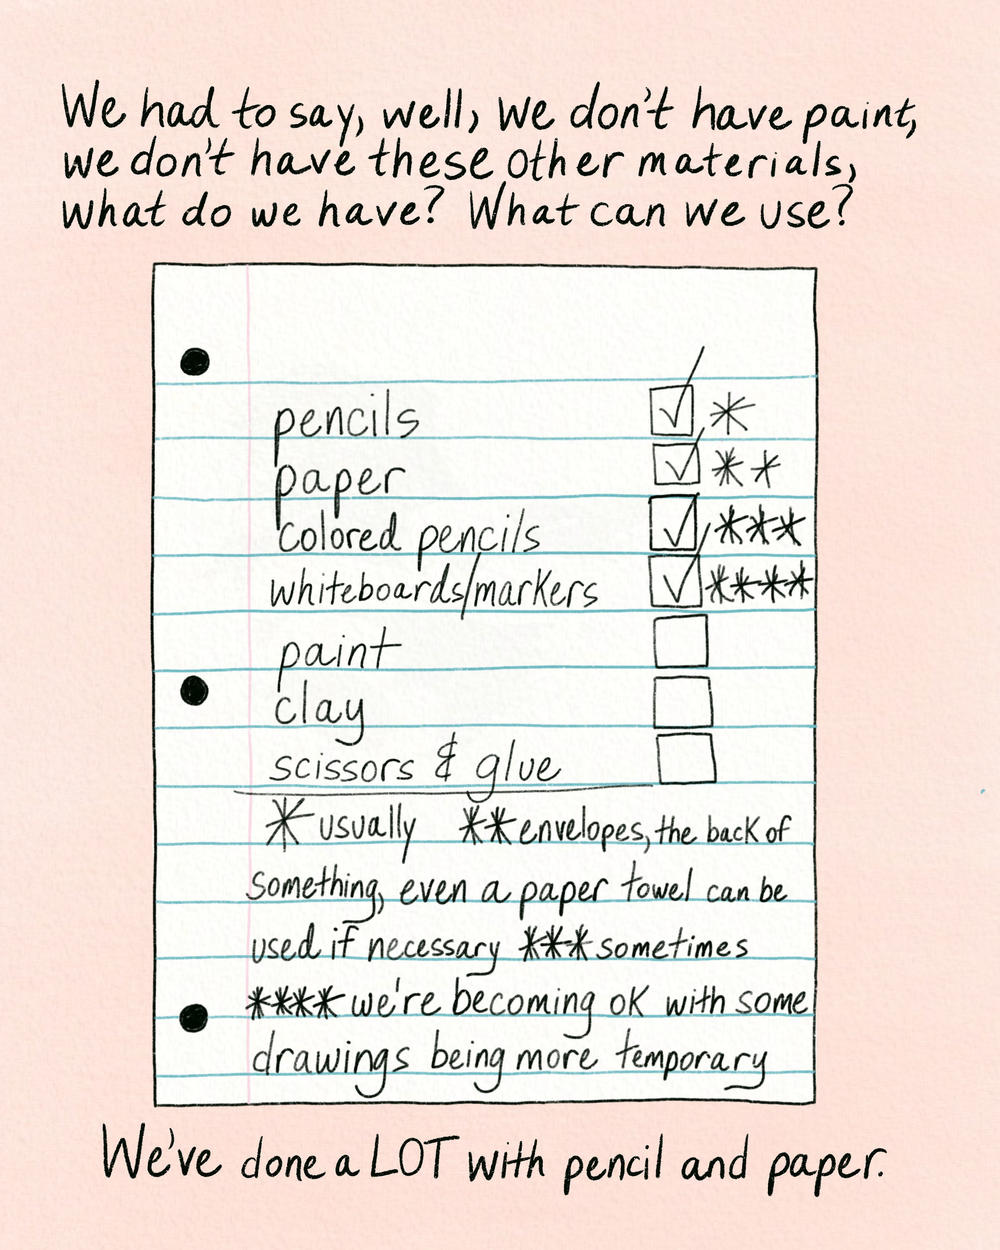 We had to say, well, we don't have paint,
we don't have these other materials,
what do we have? What can we use?
pencils ☑ *
paper ☑ **
colored pencils ☑ ***
whiteboards/markers ☑ ****
paint ☐
clay ☐
scissors & glue ☐
* usually ** envelopes, the back of
something, even a paper towel can be
used if necessary *** sometimes
**** we're becoming ok with some
drawings being more temporary
We've done a LOT with pencil and paper.